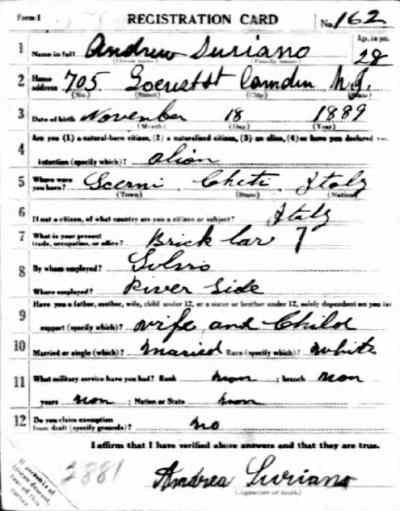 Form 1 REGISTRATION CARD No. 162
1 Name in full Andrew Suriano Age, in yrs. 28
(Given name) (Family name)
2 Home address 705 Locust st Camden N.J.
(No.) (Street) (City) (State)
3 Date of birth November 18 1889
(Month) (Day) (Year)
4 Are you (1) a natural-born citizen, (2) a naturalized citizen, (3) an alien, (4) or have you declared your
intention (specify which)? alion
5 Where were you born? Scerni Cheti Italy
(Town) (State) (Nation)
6 If not a citizen, of what country are you a citizen or subject? Italy
7 What is your present trade, occupation, or office? Brick
8 By whom employed?
Where employed? River Side
9 Have you a father, mother, wife, child under 12, or a sister or brother under 12, solely dependent on you for
support (specify which)? wife and Child
10 Married or single (which)? Married Race (specify which)? White
11 What military service have you had? Rank non ; branch non
years non ; Nation or State non
12 Do you claim exemption from draft (specify grounds)? no
I affirm that I have verified above answers and that they are true.
2881
Andrea Suriano
(Signature or mark)